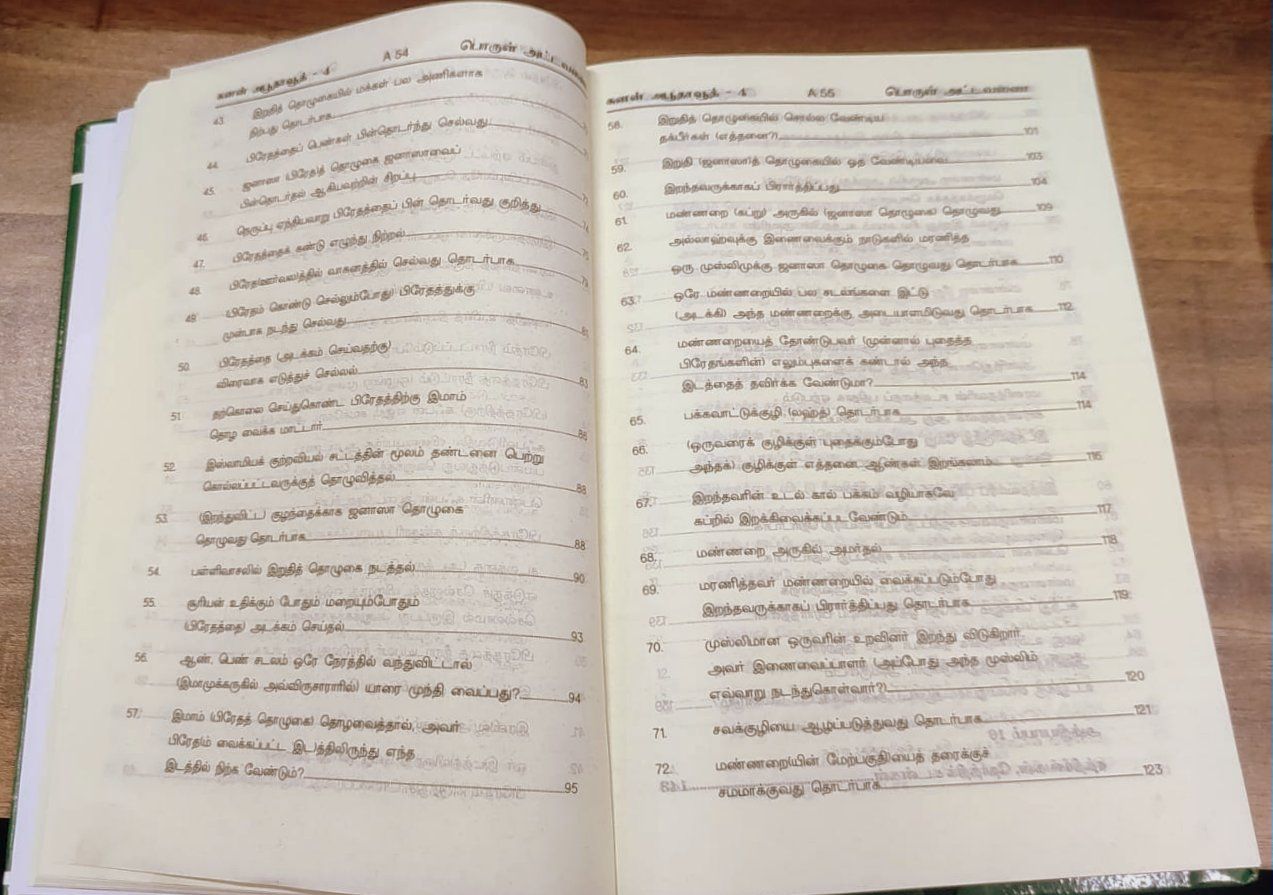 சுனன் அபூதாவூத் - 4 A 54 பொருள் அட்டவணை
43. இறுதித் தொழுகையில் மக்கள் பல அணிகளாக
நிற்பது தொடர்பாக
44. பிரேதத்தைப் பெண்கள் பின்தொடர்ந்து செல்வது
45. ஜனாஸா (பிரேத)த் தொழுகை ஜனாஸாவைப்
பின்தொடர்தல் ஆகியவற்றின் சிறப்பு
46. நெருப்பு ஏந்தியவாறு பிரேதத்தைப் பின் தொடர்வது குறித்து
47. பிரேதத்தைக் கண்டு எழுந்து நிற்றல்
48. பிரேத(ஊர்வல)த்தில் வாகனத்தில் செல்வது தொடர்பாக
49. (பிரேதம் கொண்டு செல்லும்போது) பிரேதத்துக்கு
முன்பாக நடந்து செல்வது 81
50. பிரேதத்தை (அடக்கம் செய்வதற்கு)
விரைவாக எடுத்துச் செல்லல் 83
51. தற்கொலை செய்துகொண்ட பிரேதத்திற்கு இமாம்
தொழ வைக்க மாட்டார் 86
52. இஸ்லாமியக் குற்றவியல் சட்டத்தின் மூலம் தண்டனை பெற்று
கொல்லப்பட்டவருக்குத் தொழுவித்தல் 88
53. (இறந்துவிட்ட) குழந்தைக்காக ஜனாஸா தொழுகை
தொழுவது தொடர்பாக 88
54. பள்ளிவாசலில் இறுதித் தொழுகை நடத்தல் 90
55. சூரியன் உதிக்கும் போதும் மறையும்போதும்
(பிரேதத்தை) அடக்கம் செய்தல் 93
56. ஆண், பெண் சடலம் ஒரே நேரத்தில் வந்துவிட்டால்
(இமாமுக்கருகில் அவ்விருசாராரில்) யாரை முந்தி வைப்பது? 94
57. இமாம் (பிரேதத் தொழுகை) தொழவைத்தால், அவர்
பிரேதம் வைக்கப்பட்ட இடத்திலிருந்து எந்த
இடத்தில் நிற்க வேண்டும்? 95
சுனன் அபூதாவூத் - 4 A 55 பொருள் அட்டவணை
58. இறுதித் தொழுகையில் சொல்ல வேண்டிய
தக்பீர்கள் (எத்தனை?) 101
59. இறுதி (ஜனாஸா)த் தொழுகையில் ஓத வேண்டியவை 103
60. இறந்தவருக்காகப் பிரார்த்திப்பது 104
61. மண்ணறை (கப்று) அருகில் (ஜனாஸா தொழுகை) தொழுவது 109
62. அல்லாஹ்வுக்கு இணைவைக்கும் நாடுகளில் மரணித்த
ஒரு முஸ்லிமுக்கு ஜனாஸா தொழுகை தொழுவது தொடர்பாக 110
63. ஒரே மண்ணறையில் பல சடலங்களை இட்டு
(அடக்கி) அந்த மண்ணறைக்கு அடையாளமிடுவது தொடர்பாக 112
64. மண்ணறையைத் தோண்டுபவர் (முன்னால் புதைத்த
பிரேதங்களின்) எலும்புகளைக் கண்டால் அந்த
இடத்தைத் தவிர்க்க வேண்டுமா? 114
65. பக்கவாட்டுக்குழி (லஹத்) தொடர்பாக 114
66. (ஒருவரைக் குழிக்குள் புதைக்கும்போது
அந்தக்) குழிக்குள் எத்தனை ஆண்கள் இறங்கலாம் 116
67. இறந்தவரின் உடல் கால் பக்கம் வழியாகவே
கப்றில் இறக்கிவைக்கப்பட வேண்டும் 117
68. மண்ணறை அருகில் அமர்தல் 118
69. மரணித்தவர் மண்ணறையில் வைக்கப்படும்போது
இறந்தவருக்காகப் பிரார்த்திப்பது தொடர்பாக 119
70. முஸ்லிமான ஒருவரின் உறவினர் இறந்து விடுகிறார்
அவர் இணைவைப்பாளர் (அப்போது அந்த முஸ்லிம்
எவ்வாறு நடந்துகொள்வார்?) 120
71. சவக்குழியை ஆழப்படுத்துவது தொடர்பாக 121
72. மண்ணறையின் மேற்பகுதியைத் தரைக்குச்
சமமாக்குவது தொடர்பாக 123